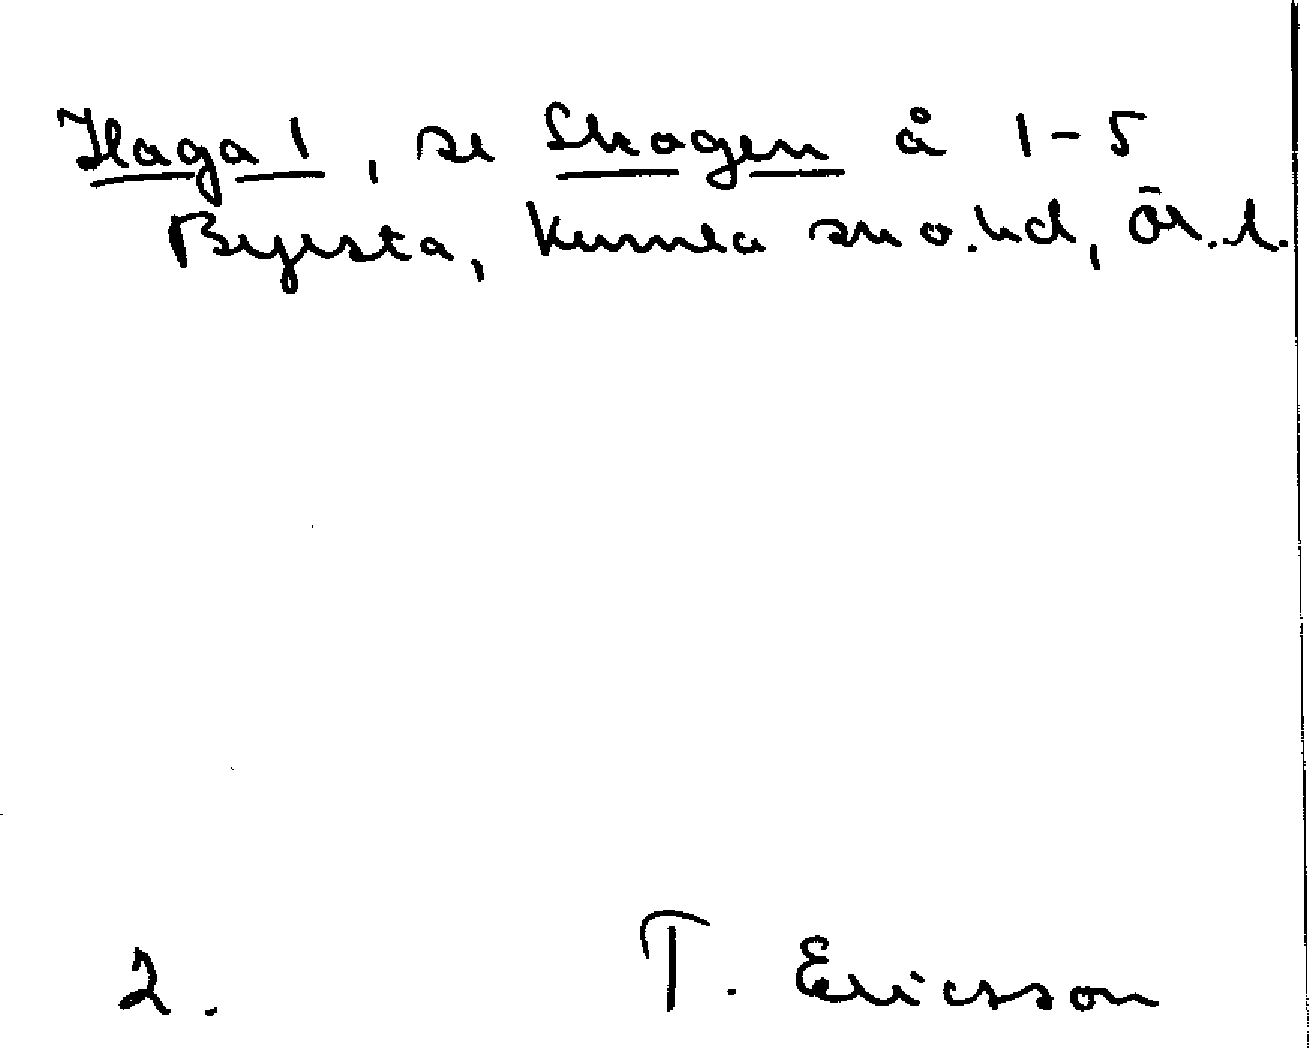 Haga 1, se Skogen å 1-5
Byrsta, Kumla sn o. hd, Ör. l.
2. T. Ericsson